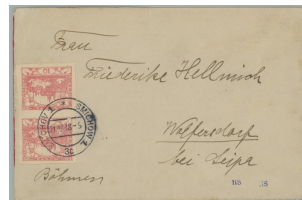 Frau
Friederike Hellmich
Wolfersdorf
bei Leipa
Böhmen
SMICHOW 1
3c